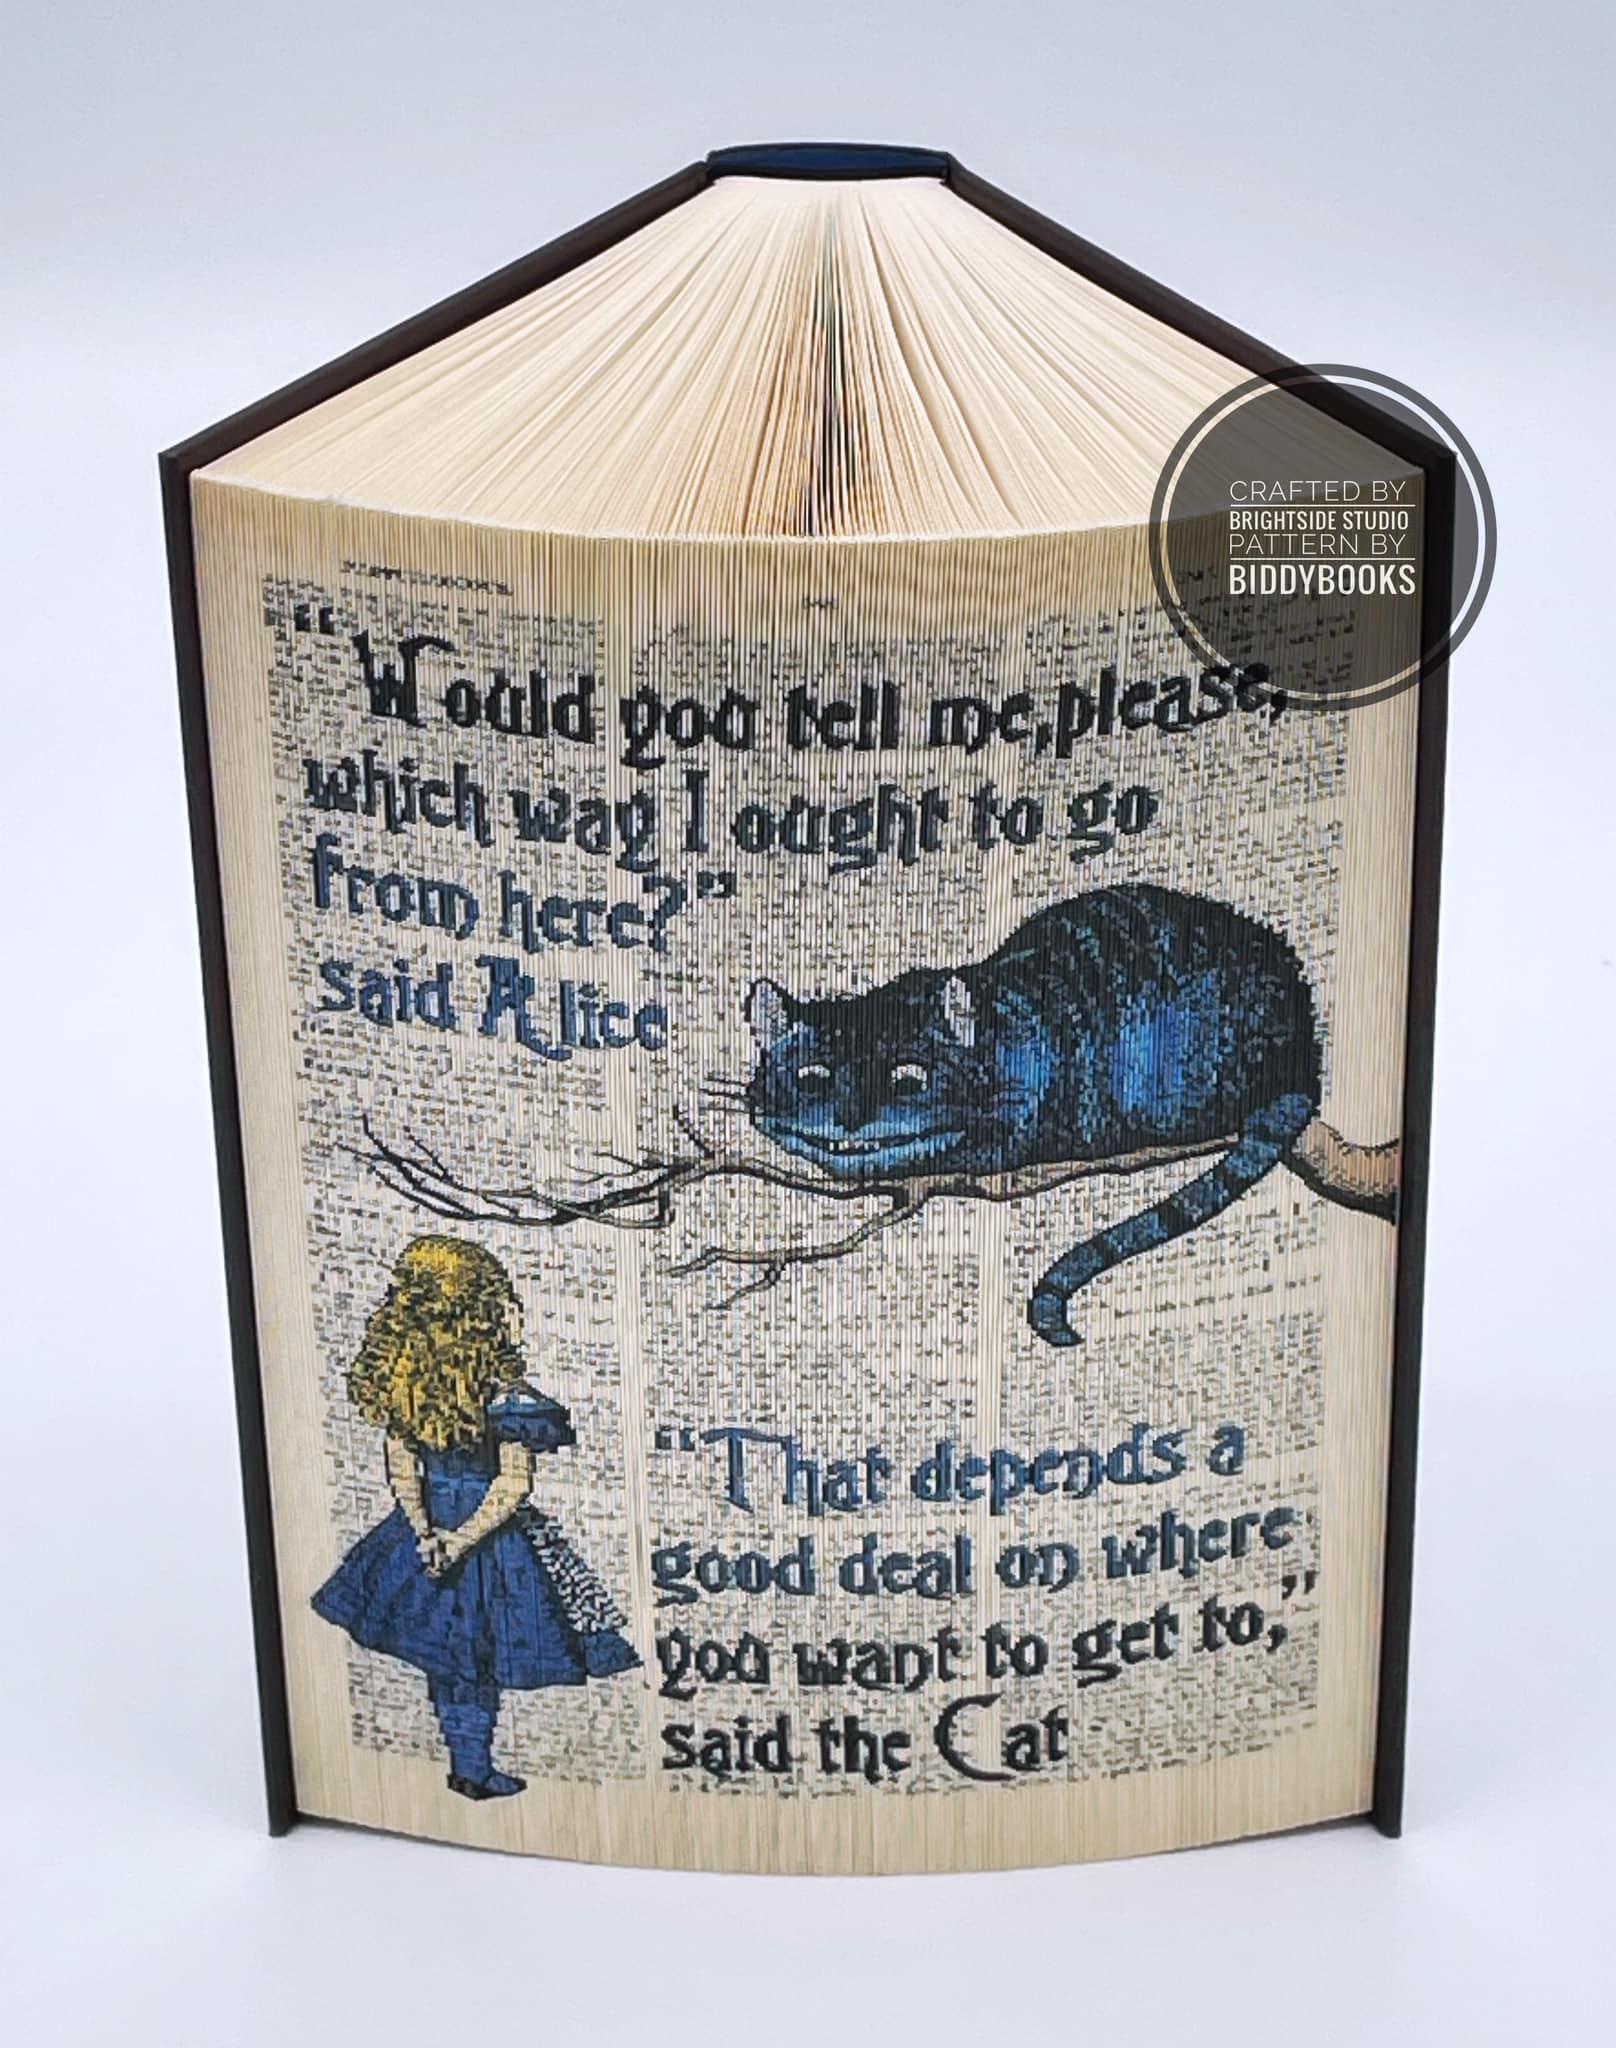 CRAFTED BY
BRIGHTSIDE STUDIO
PATTERN BY
BIDDYBOOKS
“Would you tell me,please,
which way I ought to go
from here?”
said Alice
“That depends a
good deal on where
you want to get to,”
said the Cat